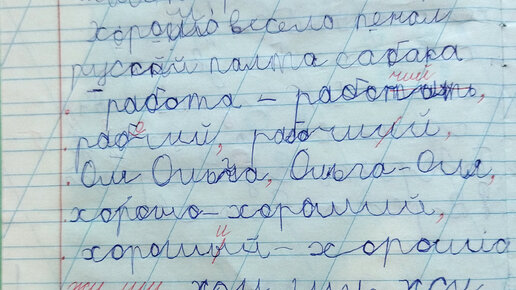 хорошо весело пенал
руский палта сабака
работа – работать,
рабочий, рабочий,
Ом Ольга, Ольга–Оля,
хорошо–хороший,
хороший – хорошо
жи ши